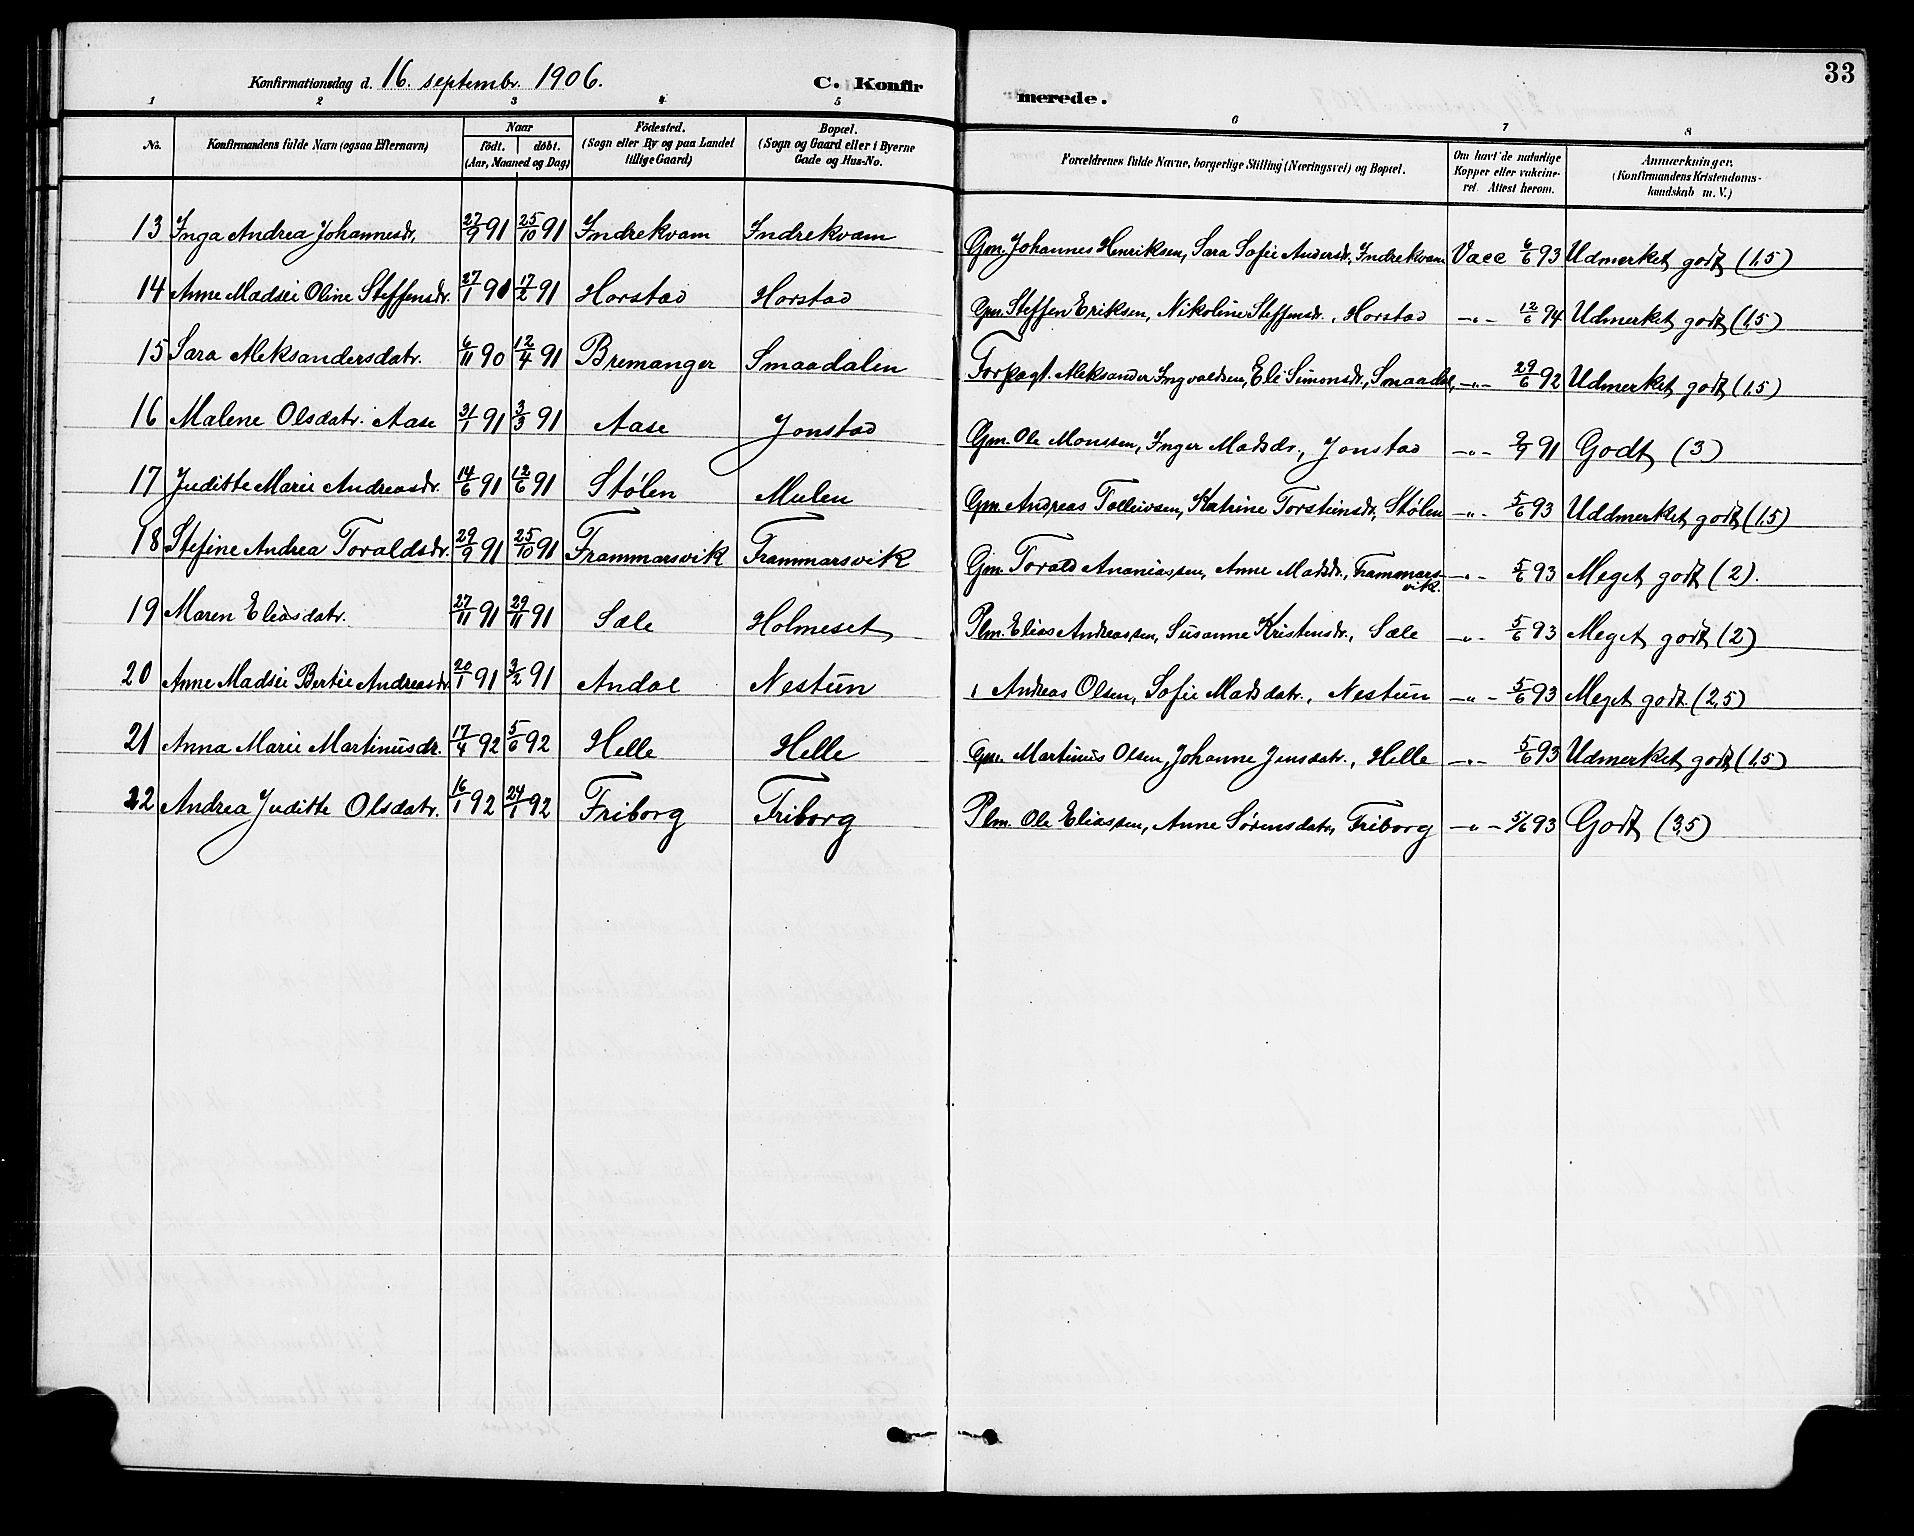 33
Konfirmationsdag d. 16. septembr. 1906. C. Konfirmerede.
1 2 3 4 5 6 7 8
No. Konfirmandens fulde Navn (ogsaa Efternavn) Naar födt. döbt. (Aar, Maaned og Dag) Födested. (Sogn eller By og paa Landet tillige Gaard) Bopæl. (Sogn og Gaard eller i Byerne Gade og Hus-No. Forældrenes fulde Navne, borgerlige Stilling (Næringsvei) og Bopæl. Om havt de naturlige Kopper eller vakcineret. Attest herom. Anmærkninger. (Konfirmandens Kristendomskundskab m. V.)
13 Inga Andrea Johannesdr. 27/9 91 25/10 91 Indrekvam Indrekvam Gm. Johannes Henriksen, Sara Sofie Andersdr., Indrekvam Vacc 6/6 93 Udmerket godt (1,5)
14 Anne Madsei Oline Steffensdr. 27/1 91 17/2 91 Horstad Horstad Gm. Steffen Eriksen, Nikoline Steffensdr., Horstad -„- 12/6 94 Udmerket godt (1,5)
15 Sara Aleksandersdatr. 6/11 90 12/4 91 Bremanger Smaadalen Forpagt. Aleksander Ingvaldsen, Eli Simonsdr., Smaadal, -„- 29/6 92 Udmerket godt (1,5)
16 Malene Olsdatr. Aase 31/1 91 3/3 91 Aase Jonstad Gm. Ole Monssen, Inger Madsdr., Jonstad -„- 2/9 91 Godt (3)
17 Juditte Marie Andreasdr. 14/6 91 12/6 91 Stølen Mulen Gm. Andreas Tolleivsen, Katrine Torsteinsdr., Stølen -„- 5/6 93 Uddmerket godt (1,5)
18 Stefine Andrea Toraldsdr. 29/9 91 25/10 91 Frammarsvik Frammarsvik Gm. Torald Ananiassen, Anne Madsdr., Frammarsvik. -„- 5/6 93 Meget godt (2).
19 Maren Eliasdatr. 27/11 91 29/11 91 Sæle Holmeset Plm. Elias Andreassen, Susanne Kristensdr., Sæle -„- 5/6 93 Meget godt (2)
20 Anne Madsei Bertie Andreasdr. 20/1 91 3/2 91 Andal Nestun Andreas Olsen, Sofie Madsdatr., Nestun -„- 5/6 93 Meget godt. (2,5)
21 Anna Marie Martinusdr. 17/4 92 5/6 92 Helle Helle Gm. Martinus Olsen, Johanne Jensdatr., Helle -„- 5/6 93 Udmerket godt (1,5)
22 Andrea Juditte Olsdatr. 16/1 92 24/1 92 Friborg Friborg Plm. Ole Eliassen, Anne Sørensdatr, Friborg -„- 5/6 93 Godt (3,5)